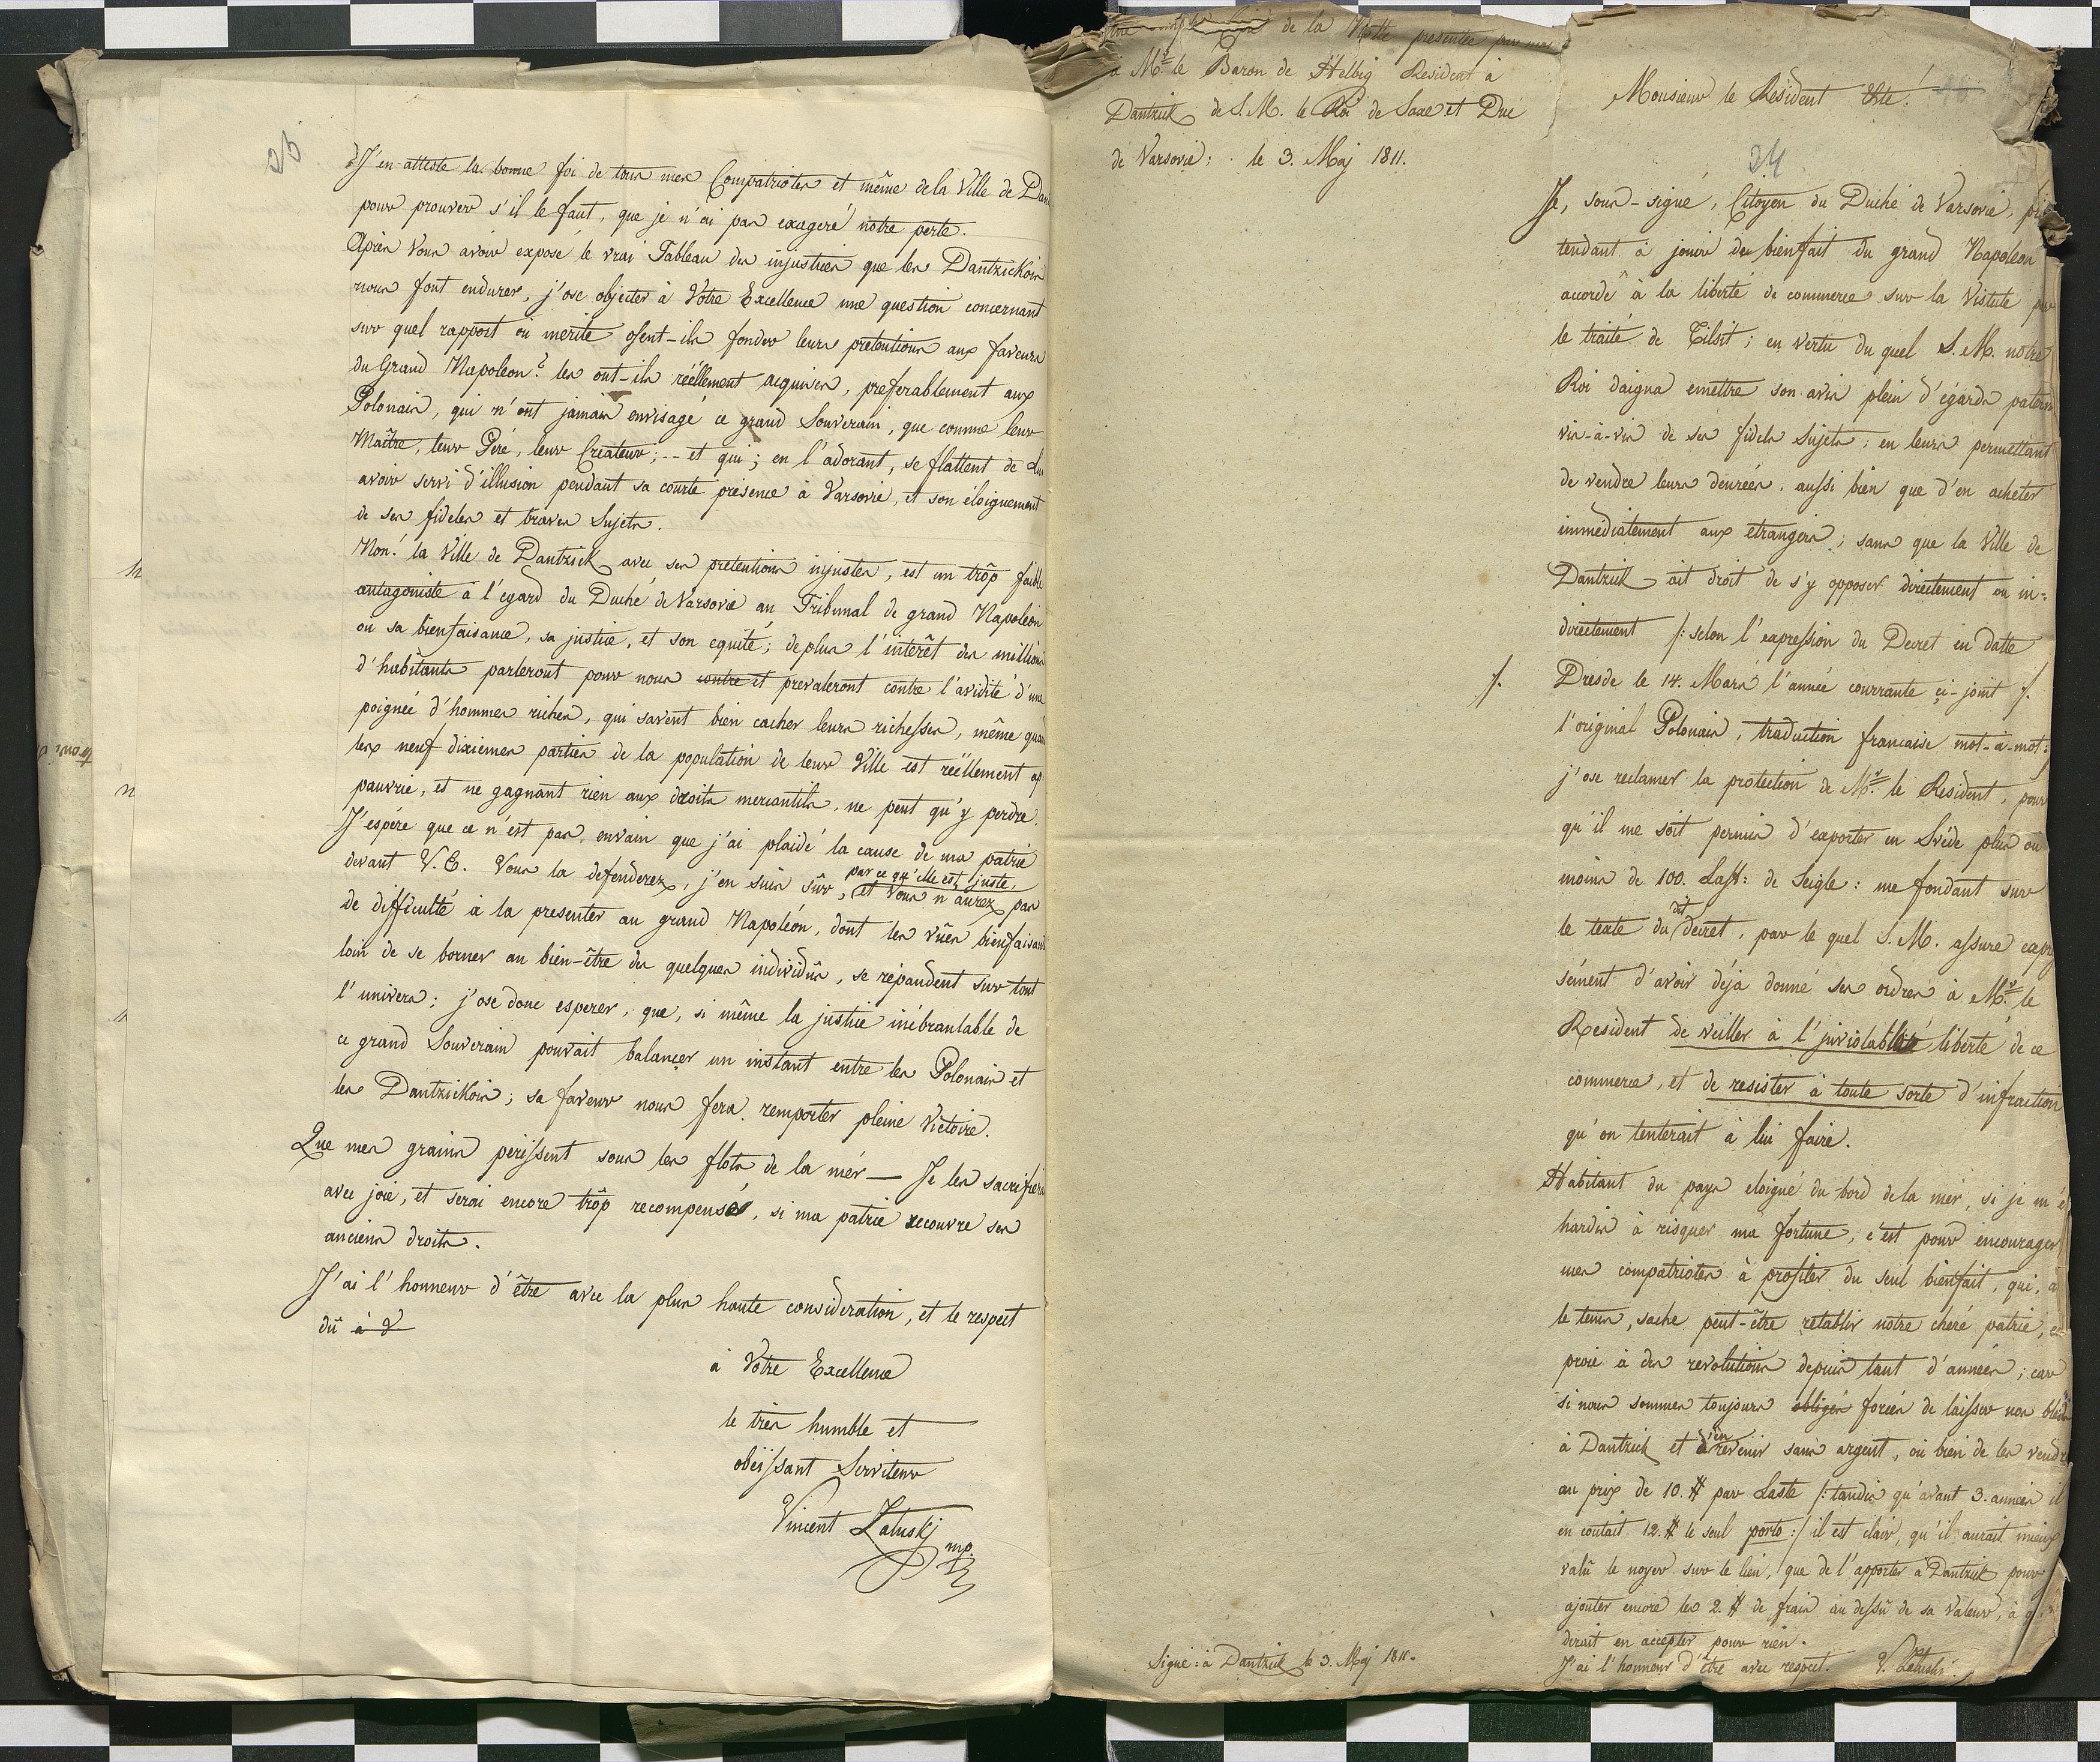 26
J'en atteste la bonne foi de tous mes Compatriotes et même de la Ville de Dan
pour prouver s'il le faut, que je n'ai pas exageré notre perte.
Après Vous avoir exposé le vrai Tableau des injustices que les Dantzickois
nous font endurer, j'ose objecter à Votre Excellence une question concernant
sur quel rapport ou merite osent-ils fonder leurs pretentions aux faveurs
du Grand Napoleon? les ont-ils réellement acquises, preferablement aux
Polonais, qui n'ont jamais envisagé ce grand Souverain, que comme leur
Maître, leur Peré, leur Créateur; -- et qui; en l'adorant, se flattent de Lui
avoir servi d'illusion pendant sa courte présence à Varsovie, et son éloignement
de ses fideles et braves Sujets.
Non! la Ville de Dantzick avec ses pretentions injustes, est un trôp faible
antagoniste à l'égard du Duché de Varsovie au Tribunal de grand Napoleon
ou sa bienfaisance, sa justice, et son equité; deplus l'intérêt des millions
d'habitants parleront pour nous contre et prevaleront contre l'avidité d'une
poignée d'hommes riches, qui savent bien cacher leurs richesses, même quand
les neuf dixiemes parties de la population de leur Ville est réellement ap
pauvrie, et ne gagnant rien aux droits mercantils, ne peut qu'y perdre.
J'espére que ce n'est pas envain que j'ai plaidé la cause de ma patrie
devant V. E. Vous la defenderez, j'en suis sûr, par ce qu'elle est juste, et Vous n'aurez pas
de difficulté à la presenter au grand Napoléon, dont les vûes bienfaisantes
loin de se borner au bien-être de quelques individûs, se repandent sur tout
l'univers; j'ose donc esperer, que, si même la justice inébranlable de
ce grand Souverain pouvait balançer un instant entre les Polonais et
les Dantzickois; sa faveur nous fera remporter pleine Victoire.
Que mes grains périssent sous les flots de la mér — Je les sacrifierai
avec joie, et serai encore trôp recompensé, si ma patrie recouvre ses
anciens droits.
J'ai l'honneur d'être avec la plus haute consideration, et le respect
dû à V
à Votre Excellence
le très humble et
obéissant Serviteur
Vincent Zaluskj
mp.
de la Notte presentée par moi
à Mr. le Baron de Helbig Resident à
Dantzick de S. M. le Roi de Saxe et Duc
de Varsovie: le 3. Maj 1811.
Signé: à Dantzick le 3. Maj 1811.
Monsieur le Résident
24
Je, sous-signé, Citoyen du Duché de Varsovie, pré
tendant à jouir du bienfait du grand Napoleon
accordé à la liberté de commerce sur la Vistule par
le traité de Tilsit; en vertu du quel S. M. notre
Roi daigna emettre son avis plein d'égards patern
vis-à-vis de ses fidels Sujets; en leurs permettant
de vendre leurs denrées. aussi bien que d'en acheter
immédiatement aux etrangers; sans que la Ville de
Dantzick ait droit de s'y opposer directement ou in=
directement /: selon l'expression du Decret en datte
Dresde le 14. Mars l'année courrante çi-joint /.
/.
l'original Polonais, traduction francaise mot-à-mot:/
j'ose reclamer la protection de Mr. le Résident, pour
qu'il me soit permis d'exporter en Svéde plus ou
moins de 100. Last: de Seigle: me fondant sur
le texte du dit decret, par le quel S. M. assure expr
sément d'avoir déja donné ses ordres à Mr. le
Resident de veiller à l'inviolable liberté de ce
commerce, et de resister à toute sorte d'infraction
qu'on tenterait à lui faire.
Habitant du pays eloigné du bord de la mér, si je m'é
hardis à risquer ma fortune, c'est pour encourager
mes compatriotes à profiter du seul bienfait, qui, a
le tems, sache peut-être retablir notre cheré patrie, en
proie à des revolutions depuis tant d'années; car
si nous sommes toujours obligés forcés de laisser nos bleds
à Dantzick et d'en revenir sans argent, où bien de les vendre
au prix de 10. # par Laste /: tandis qu'avant 3. années il
en coutait 12. # le seul porto:/ il est clair, qu'il aurait mieux
valû le noyer sur le lieu, que de l'apporter à Dantzick pour
ajouter encore les 2. # de frais au dessû de sa valeur, à q
derait en accepter pour rien.
J'ai l'honneur d'être avec respect. V. Zaluski.